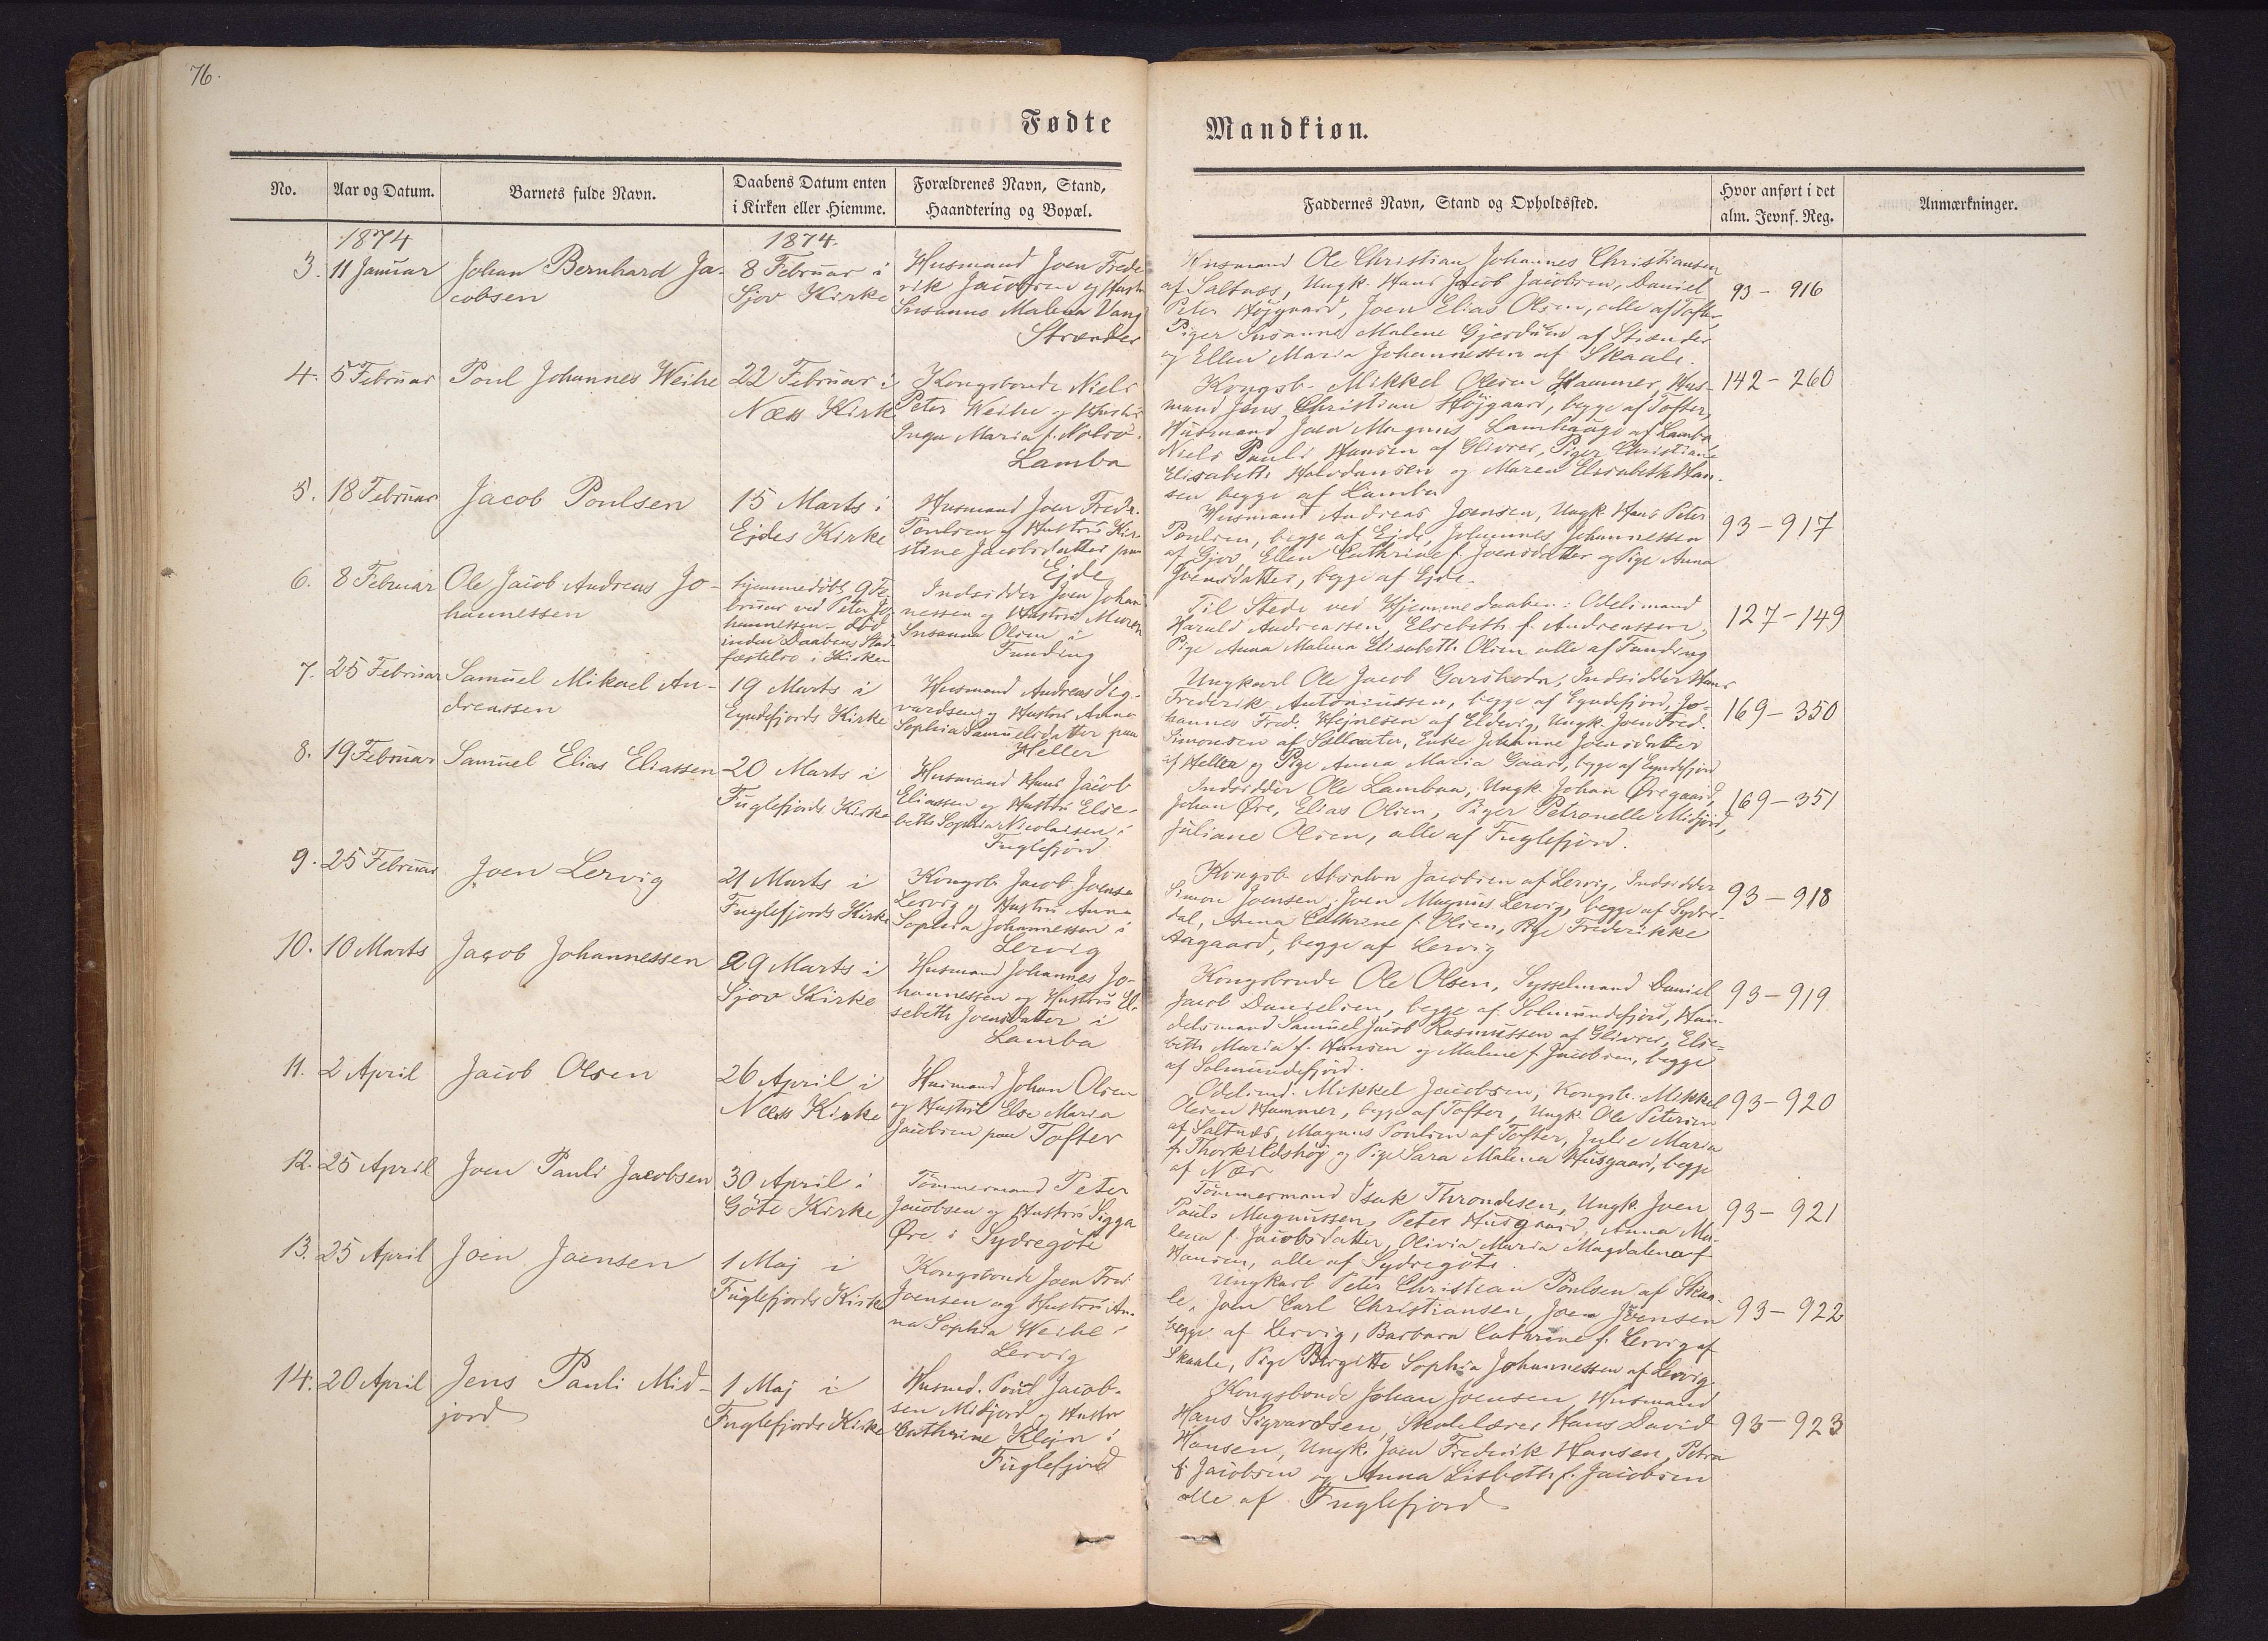 76.
Fødte
Mandkiøn.
No.
Aar og Datum.
Barnets fulde Navn.
Daabens Datum enten
i Kirken eller Hiemme.
Forældrenes Navn, Stand,
Haandtering og Bopæl.
Faddernes Navn, Stand og Opholdssted.
Hvor anført i det
alm. Jevnf. Reg.
Anmærkninger.
1874
1874.
3.
11 Januar
Johan Bernhard Ja-
cobsen
8 Februar i
Sjov Kirke
Husmand Joen Frede
rik Jacobsen og Hustr
Susanne Malena Vang
Strænder
Husmand Ole Christian Johannes Christiansen
af Saltnæs, Ungk. Hans Jacob Jacobsen, Daniel
Peter Højgaard, Joen Elias Olsen, alle af Tofter,
Piger Susanne Malene Gjerdum af Strænder
og Ellen Maria Johannessen af Skaale.
93 - 916
4.
5 Februar
Poul Johannes Weihe
22 Februar i
Næs Kirk
Kongsbonde Niels
Peter Weihe og Hustru
Inga Maria f. Nolsö.
Lamba
Kongsb. Mikkel Olesen Hammer, Hus-
mand Jens Christian Højgaard, begge af Tofter,
Husmand Joen Magnus Lamhauge af Lamba
Niels Pauli Hansen af Glivrer, Piger Christiane
Elisabeth Halvdansen og Maren Elisabeth Han-
sen begge af Lamba
142 - 260
5.
18 Februar
Jacob Poulsen
15 Marts i
Ejdes Kirke
Husmand Joen Fredr.
Poulsen og Hustru Kir
stine Jacobsdatter paa
Ejde
Husmand Andreas Joensen, Ungk. Hans Peter
Poulsen, begge af Ejde, Johannes Johannessen
af Gjov, Ellen Cathrine f. Joensdatter og Pige Anna
Joensdatter, begge af Ejde.
93 - 917
6.
8 Februar
Ole Jacob Andreas Jo-
hannessen
hjemmedöbt 9 Fe-
bruar ved Peter Jo-
hannessen - död
inden Daabens Stad-
fæstelse i Kirken
Indsidder Joen Johan
nessen og Hustru Maren
Susanna Olsen i
Funding
Til Stede ved Hjemmedaaben: Odelsmand
Harald Andreassen, Elsebeth f. Andreassen,
Pige Anna Malena Elisabeth Olsen alle af Funding
127 - 149
7.
25 Februar
Samuel Mikael An-
dreassen
19 Marts i
Eyndefjords Kirke
Husmand Andreas Sig-
vardsen og Hustru Anna
Sophia Samuelsdatter paa
Heller
Ungkarl Ole Jacob Garshodn, Indsidder Hans
Frederik Antoniussen, begge af Eyndefjord, Jo-
hannes Fred. Hejnesen af Eldevig, Ungk. Joen Fred.
Simonsen af Sellcater, Enke Johanne Joensdatter
af Heller og Pige Anna Maria Gaard, begge af Eyndefjord
169 - 350
8.
19 Februar
Samuel Elias Eliassen
20 Marts i
Fuglefjords Kirke
Husmand Hans Jacob
Eliassen og Hustru Else-
beth Sophia Nicolaisen i
Fuglefjord
Indsidder Ole Lambaa, Ungk. Johan Øregaard,
Johan Øre, Elias Olsen, Piger Petronelle Midjord,
Juliane Olsen, alle af Fuglefjord.
169 - 351
9.
25 Februar
Joen Lervig
21 Marts i
Fuglefjords Kirke
Kongsb. Jacob Joensen
Lervig og Hustru Anna
Sophia Johannessen i
Lervig
Kongsb. Absalon Jacobsen af Lervig, Indsidder
Simon Joensen, Joen Magnus Lervig, begge af Sydre-
dal, Anna Cathrine f. Olsen, Pige Frederikke
Aagaard, begge af Lervig
93 - 918
10.
10 Marts
Jacob Johannessen
29 Marts i
Sjov Kirke
Husmand Johannes Jo-
hannessen og Hustru El-
sebeth Joensdatter i
Lamba
Kongsbonde Ole Olsen, Sysselmand Daniel
Jacob Danielsen, begge af Solmundefjord, Han-
delsmand Samuel Jacob Rasmussen af Glivrer, Else-
beth Maria f. Hansen og Malene f. Jacobsen, begge
af Solmundefjord.
93 - 919
11.
2 April
Jacob Olsen
26 April i
Næs Kirke
Husmand Johan Olsen
og Hustru Else Maria
Jacobsen paa Tofter
Odelsmd. Mikkel Jacobsen, Kongsb. Mikkel
Olesen Hammer, begge af Tofter, Ungk. Ole Petersen
af Saltnæs, Magnus Poulsen af Tofter, Julie Maria
f. Thorkildshøj og Pige Sara Malena Husgaard, begge
af Næs
93 - 920
12.
25 April
Joen Pauli Jacobsen
30 April i
Göte Kirke
Tömmermand Peter
Jacobsen og Hustru Sigga
Øre i Sydregöte
Tömmermand Isak Throndesen, Ungk. Joen
Pauls Magnussen, Peter Husgaard, Anna Ma-
lena f. Jacobsdatter, Olivia Maria Magdalena f.
Hansen, alle af Sydregöte.
93 - 921
13.
25 April
Joen Joensen
1 Maj i
Fuglefjords Kirke
Kongsbonde Joen Fred.
Joensen og Hustru An-
na Sophia Weihe i
Lervig
Ungkarl Peter Christian Poulsen af Skaa-
le, Joen Carl Christiansen, Joen Joensen
begge af Lervig, Barbara Cathrine f. Lervig af
Skaale, Pige Birgitte Sophia Johannessen af Lervig.
93 - 922
14.
20 April
Jens Pauli Mid-
jord
1 Maj i
Fuglefjords Kirke
Husmd. Poul Jacob-
sen Midjord og Hustru
Cathrine Klejn i
Fuglefjord
Kongsbonde Johan Joensen, Husmand
Hans Sigvardsen, Skolelærer Hans David
Hansen, Ungk. Joen Frederik Hansen, Petra
f. Jacobsen og Anna Lisbeth f. Jacobsen
alle af Fuglefjord
93 - 923